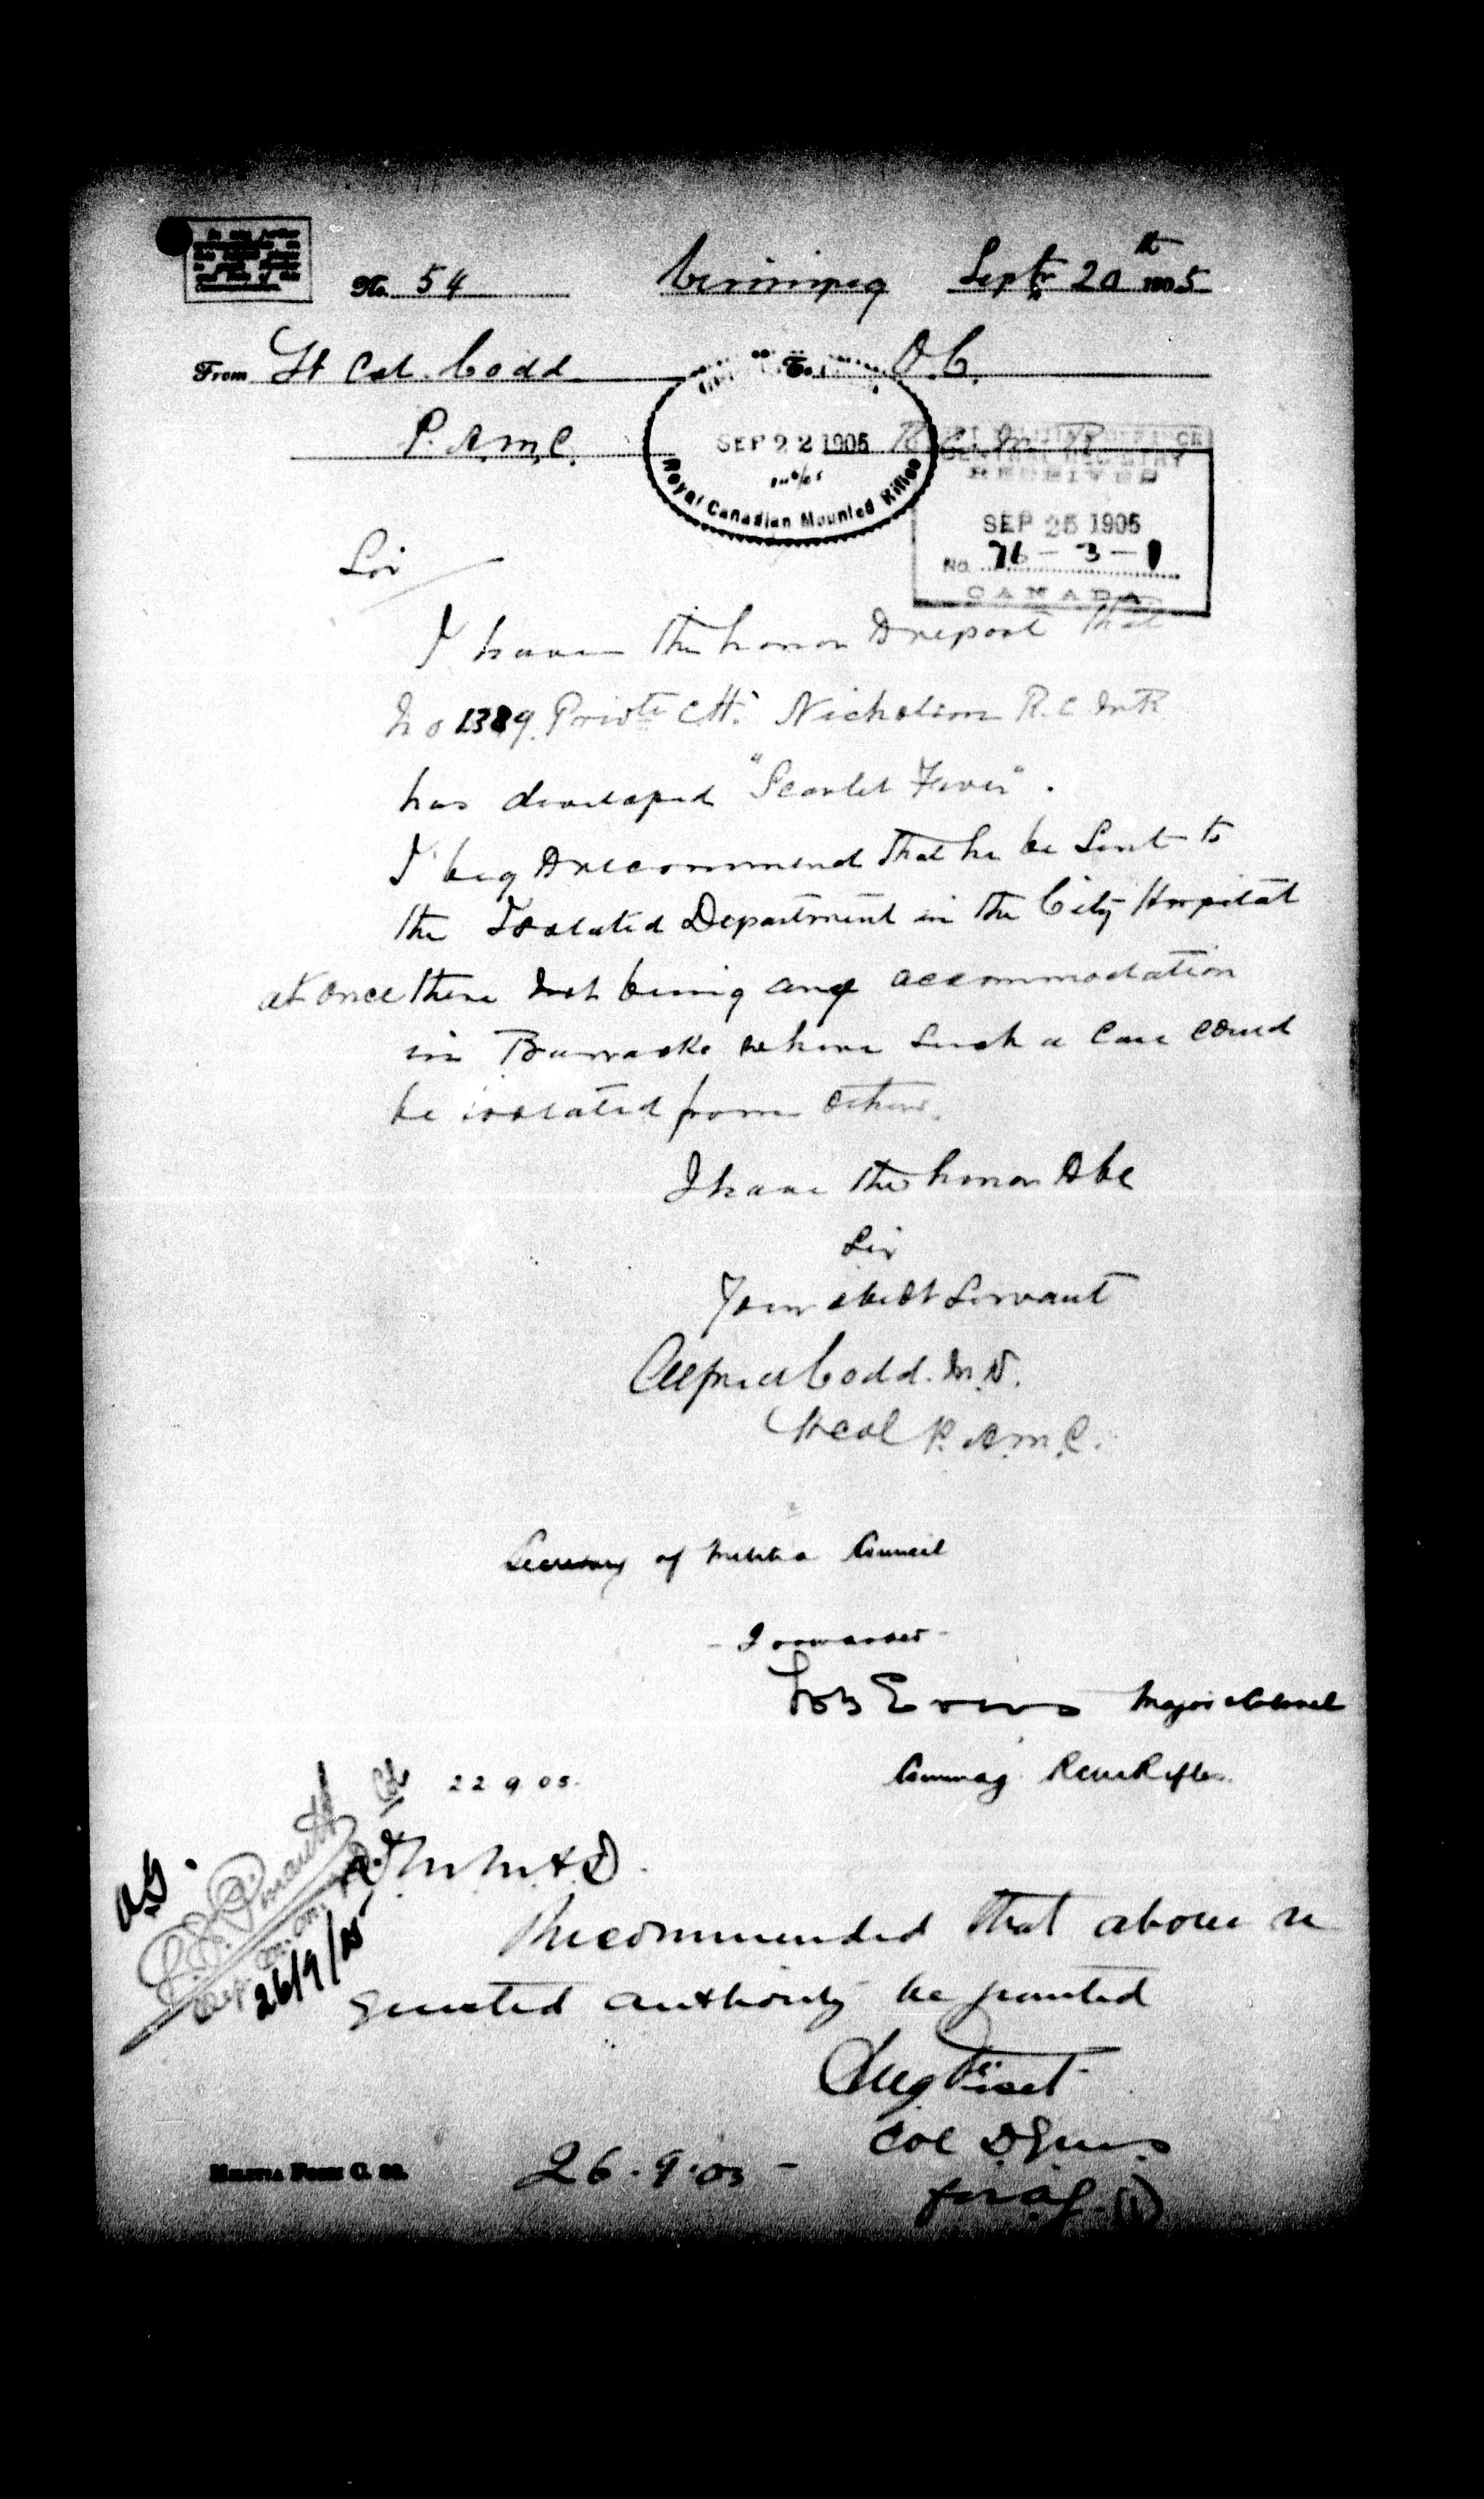 No. 54 Winnipeg Septr 20th 1905
From Lt Col. Codd To O.C.
P.A.M.C. R.C.M.R
SEP 22 1905
Royal Canadian Mounted Rifles
CENTRAL REGISTRY
RECEIVED
SEP 25 1905
No. 76-3-1
CANADA
Sir
I have the honor to report that
No 1389 Privte C.H. Nicholson R.C.M.R
has developed "Scarlet Fever".
I beg to recommend that he be Sent to
the Isolated Department in the City Hospital
at once there not being any accommodation
in Barracks where such a case could
be isolated from others.
I have the honor to be
Sir
Your obedt Servant
Alfred Codd. M.D.
Lt Col P.A.M.C.
Secretary of Militia Council
- Forwarded -
Evans Major & Colonel
Commag R.C.M. Rifles.
22 9 05.
A.G.
26/9/05
D.M.M. & D.
Recommended that above re
quested authority be granted
Eug Fiset
Col DGMS
for A.G. (1)
26.9.05 -
MILITIA FORM C.